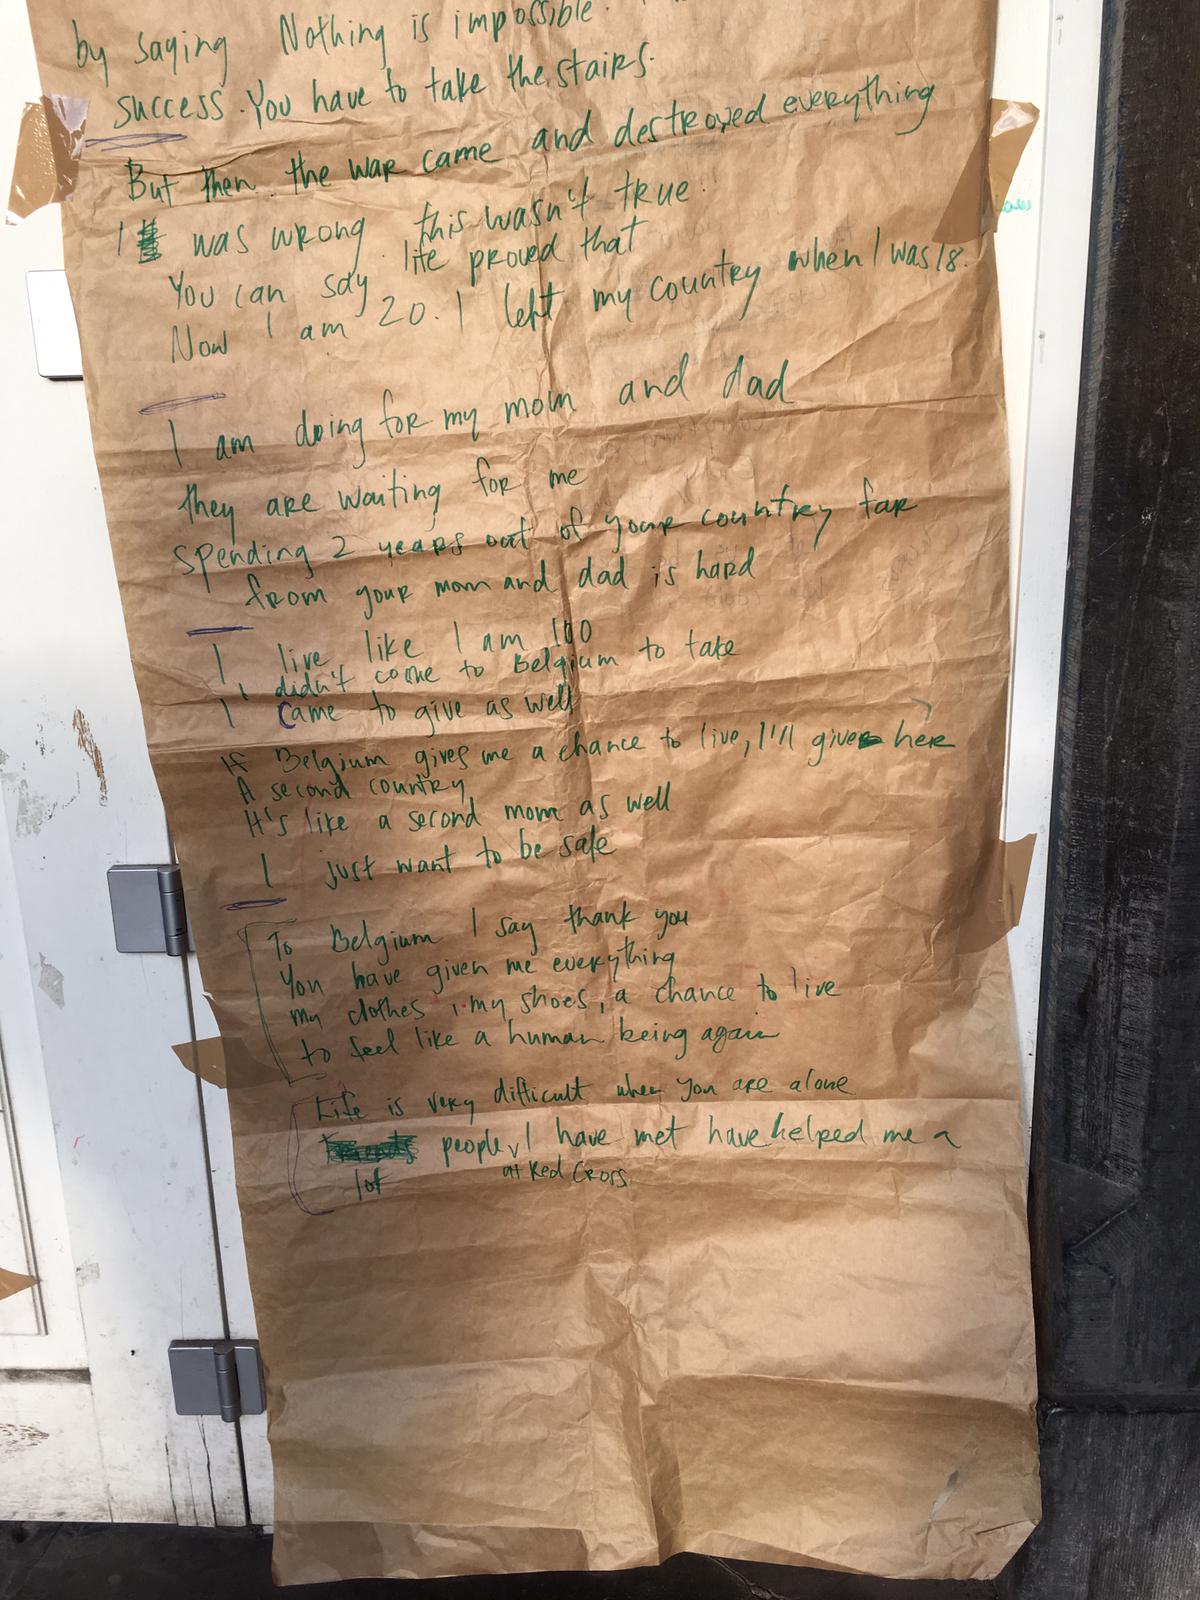 by saying Nothing is impossible.
success. You have to take the stairs.
But then the war came and destroyed everything
I was wrong this wasn't true.
You can say life proved that
Now I am 20. I left my country when I was 18.
I am doing for my mom and dad
they are waiting for me
spending 2 years out of your country far
from your mom and dad is hard
I live like I am 100
I didn't come to Belgium to take
I came to give as well
If Belgium gives me a chance to live, I'll give her
A second country
It's like a second mom as well
I just want to be safe
To Belgium I say thank you
You have given me everything
my clothes, my shoes, a chance to live
to feel like a human being again
Life is very difficult when you are alone
people I have met have helped me a
lot at Red Cross